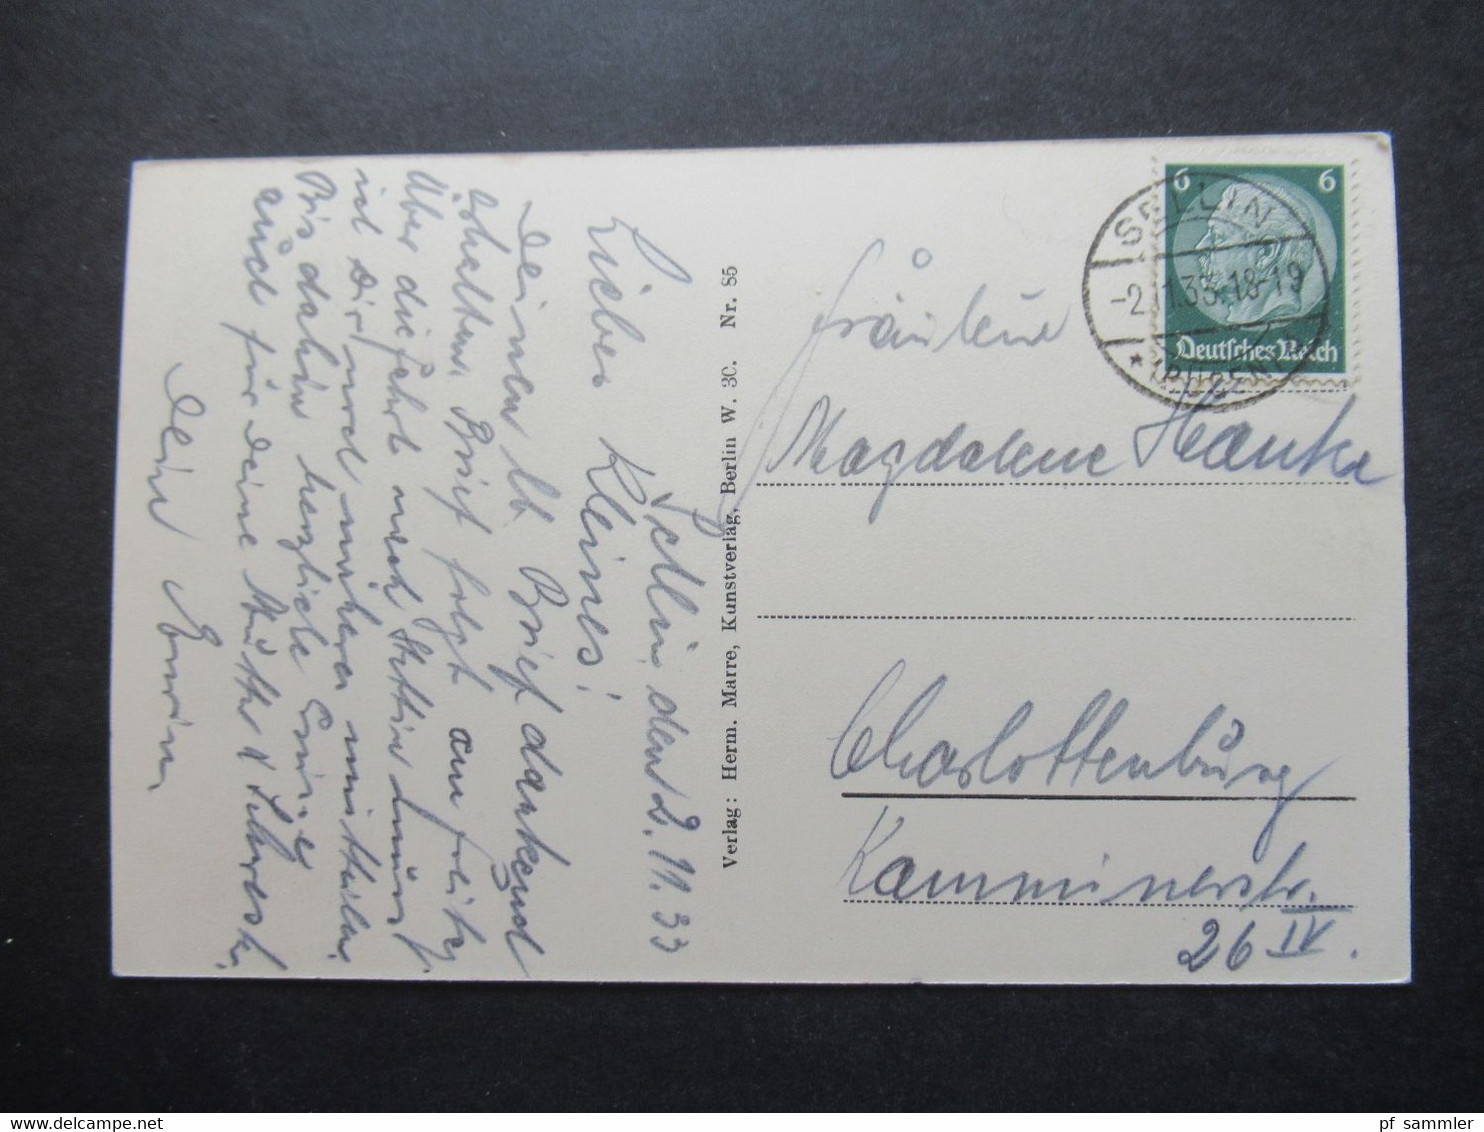 Sellin, den 2. 11. 33
Lieber Kleines!
Deinen lb. Brief dankend
erhalten. Brief folgt am Freitag.
Über die Fahrt nach Stettin
Dir noch näheres mitteilen.
Bis dahin herzliche
auch für Deine Mutter
Dein Erwin
Verlag: Herm. Marre, Kunstverlag, Berlin W. 30. Nr. 85
6 6
Deutsches Reich
SELLIN
-2.11.33.18-19
* (RÜGEN)
Fräulein
Magdalene Hanke
Charlottenburg
Kamminerstr.
26 IV.
pf_sammler
delcampe.net